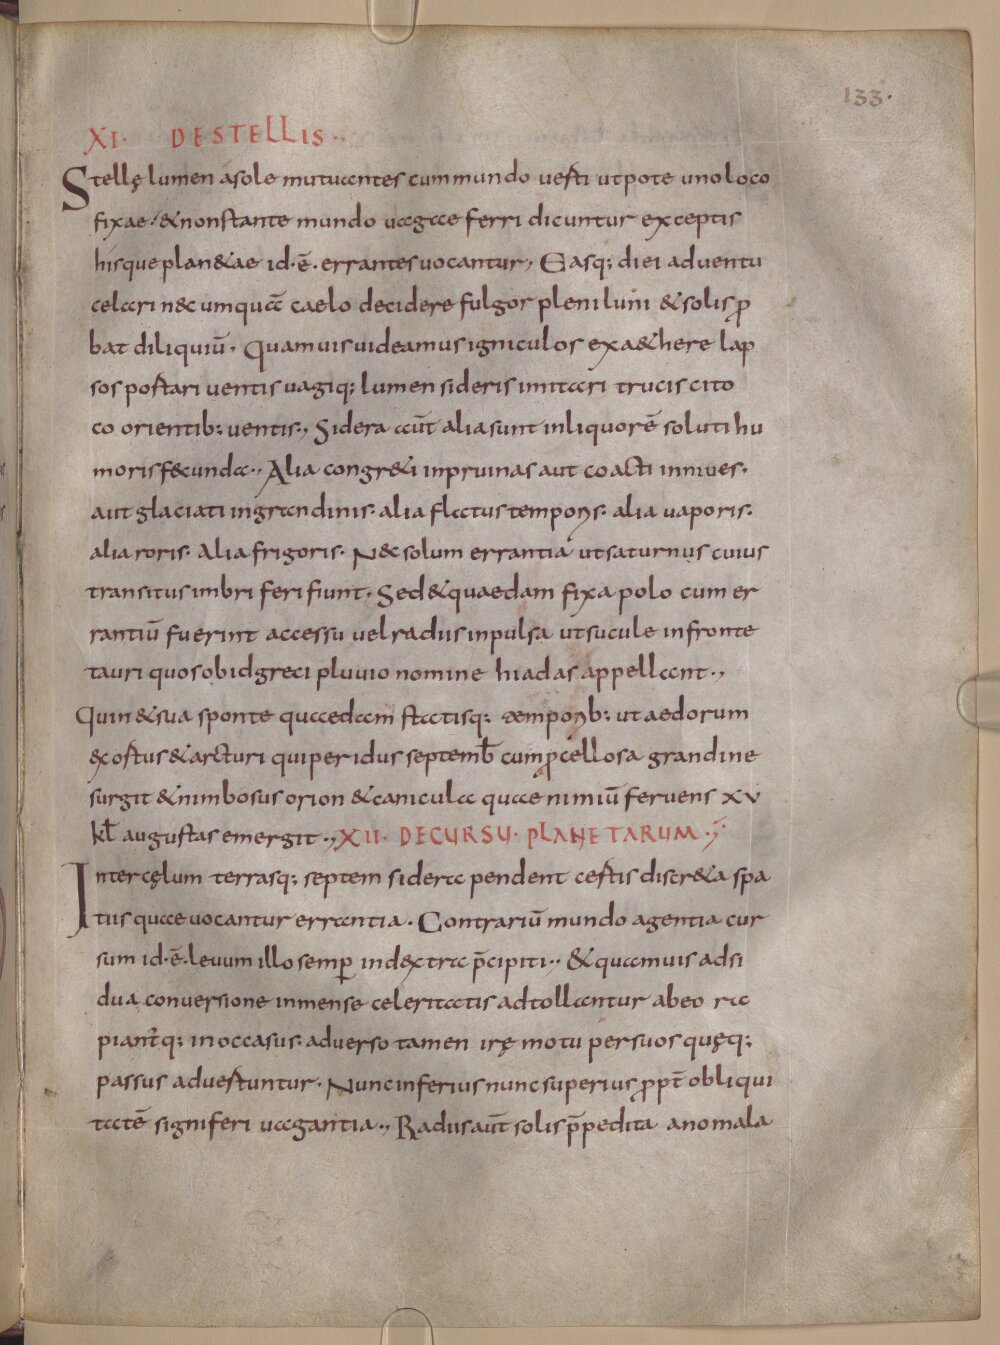 133.
XI. DE STELLIS..
Stellę lumen a sole mutuantes cum mundo uesti utpote uno loco
fixae. & non stante mundo uagae ferri dicuntur exceptis
his que plan&ae id. ē. errantes uocantur, Easq; diei aduentu
celari n&c umquā caelo decidere fulgor pleniluni & solis ꝓ
bat diliquiū. Quamuis uideamus igniculos ex a&here lap
sos postari uentis uagiq; lumen sideris imitari trucis cito
co orientib; uentis., Sidera aūt alia sunt in liquorē soluti hu
moris fecunda., Alia congr&i in pruinas aut coacti in niues.
aut glaciati in grandinis. alia flatus temporis. alia uaporis.
alia roris. Alia frigoris. N&c solum errantia ut saturnus cuius
transitus imbri feri fiunt. Sed & quaedam fixa polo cum er
rantiū fuerint accessu uel radiis inpulsa ut sucule in fronte
tauri quos ob id greci pluuio nomine hiadas appellant.,
Quin & sua sponte quaedam statisq; temporib; ut aedorum
exostus & arcturi qui per idus septemb̄ cum ꝓcellosa grandine
surgit & nimbosus orion & canicula quae nimiū feruens XV
kl̄ augustas emergit., XII. DE CURSU. PLANETARUM.,
Inter cęlum terrasq; septem sidera pendent certis discr&a spa
tiis quae uocantur errantia. Contrariū mundo agentia cur
sum id. ē. leuum illo semꝑ in dextra p̄cipiti., & quamuis adsi
dua conuersione inmense celeritatis adtollantur ab eo ra
piant̄q; in occasus. aduerso tamen irę motu per suos quęq;
passus aduestuntur. Nunc inferius nunc superius ꝓpt̄ obliqui
tatē signiferi uagantia., Radiis aūt solis p̄pedita anomala